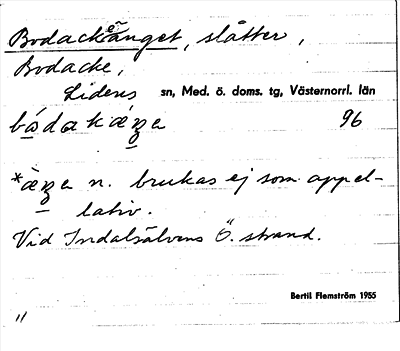 Bodackeänget, slåtter,
Bodacke,
Lidens sn, Med. ö. doms. tg, Västernorrl. län
96
n. brukas ej som appel-
lativ.
Vid Indalsälvens Ö. strand.
Bertil Flemström 1955
11